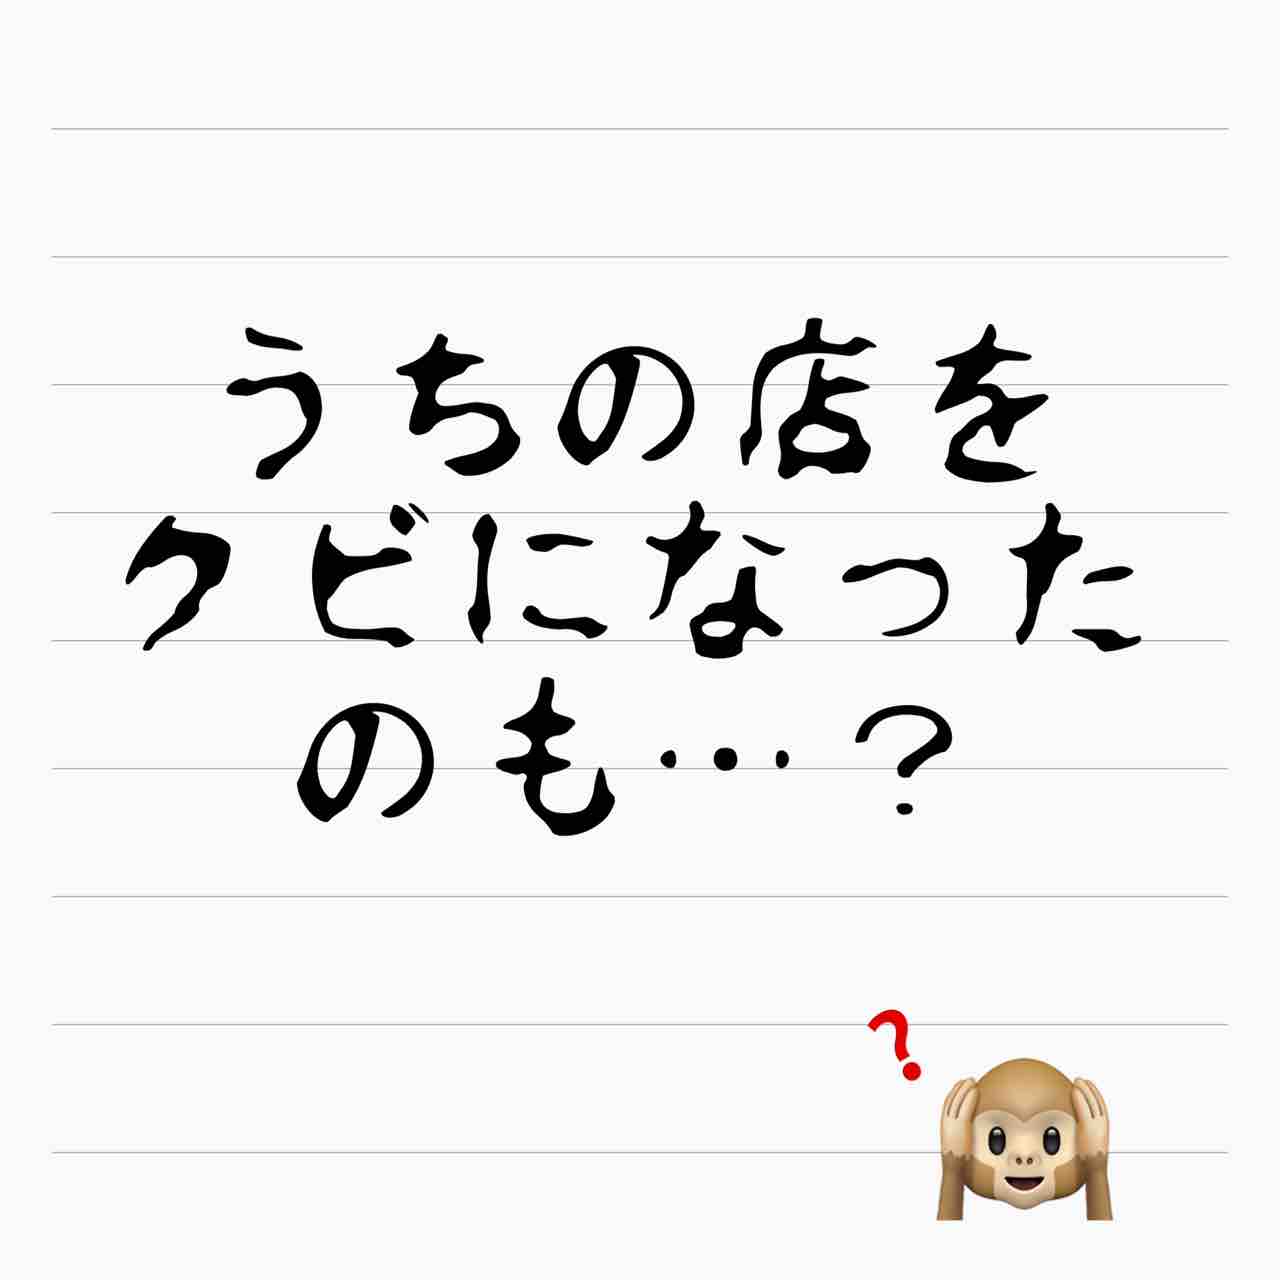 うちの店を
クビになった
のも…？
？